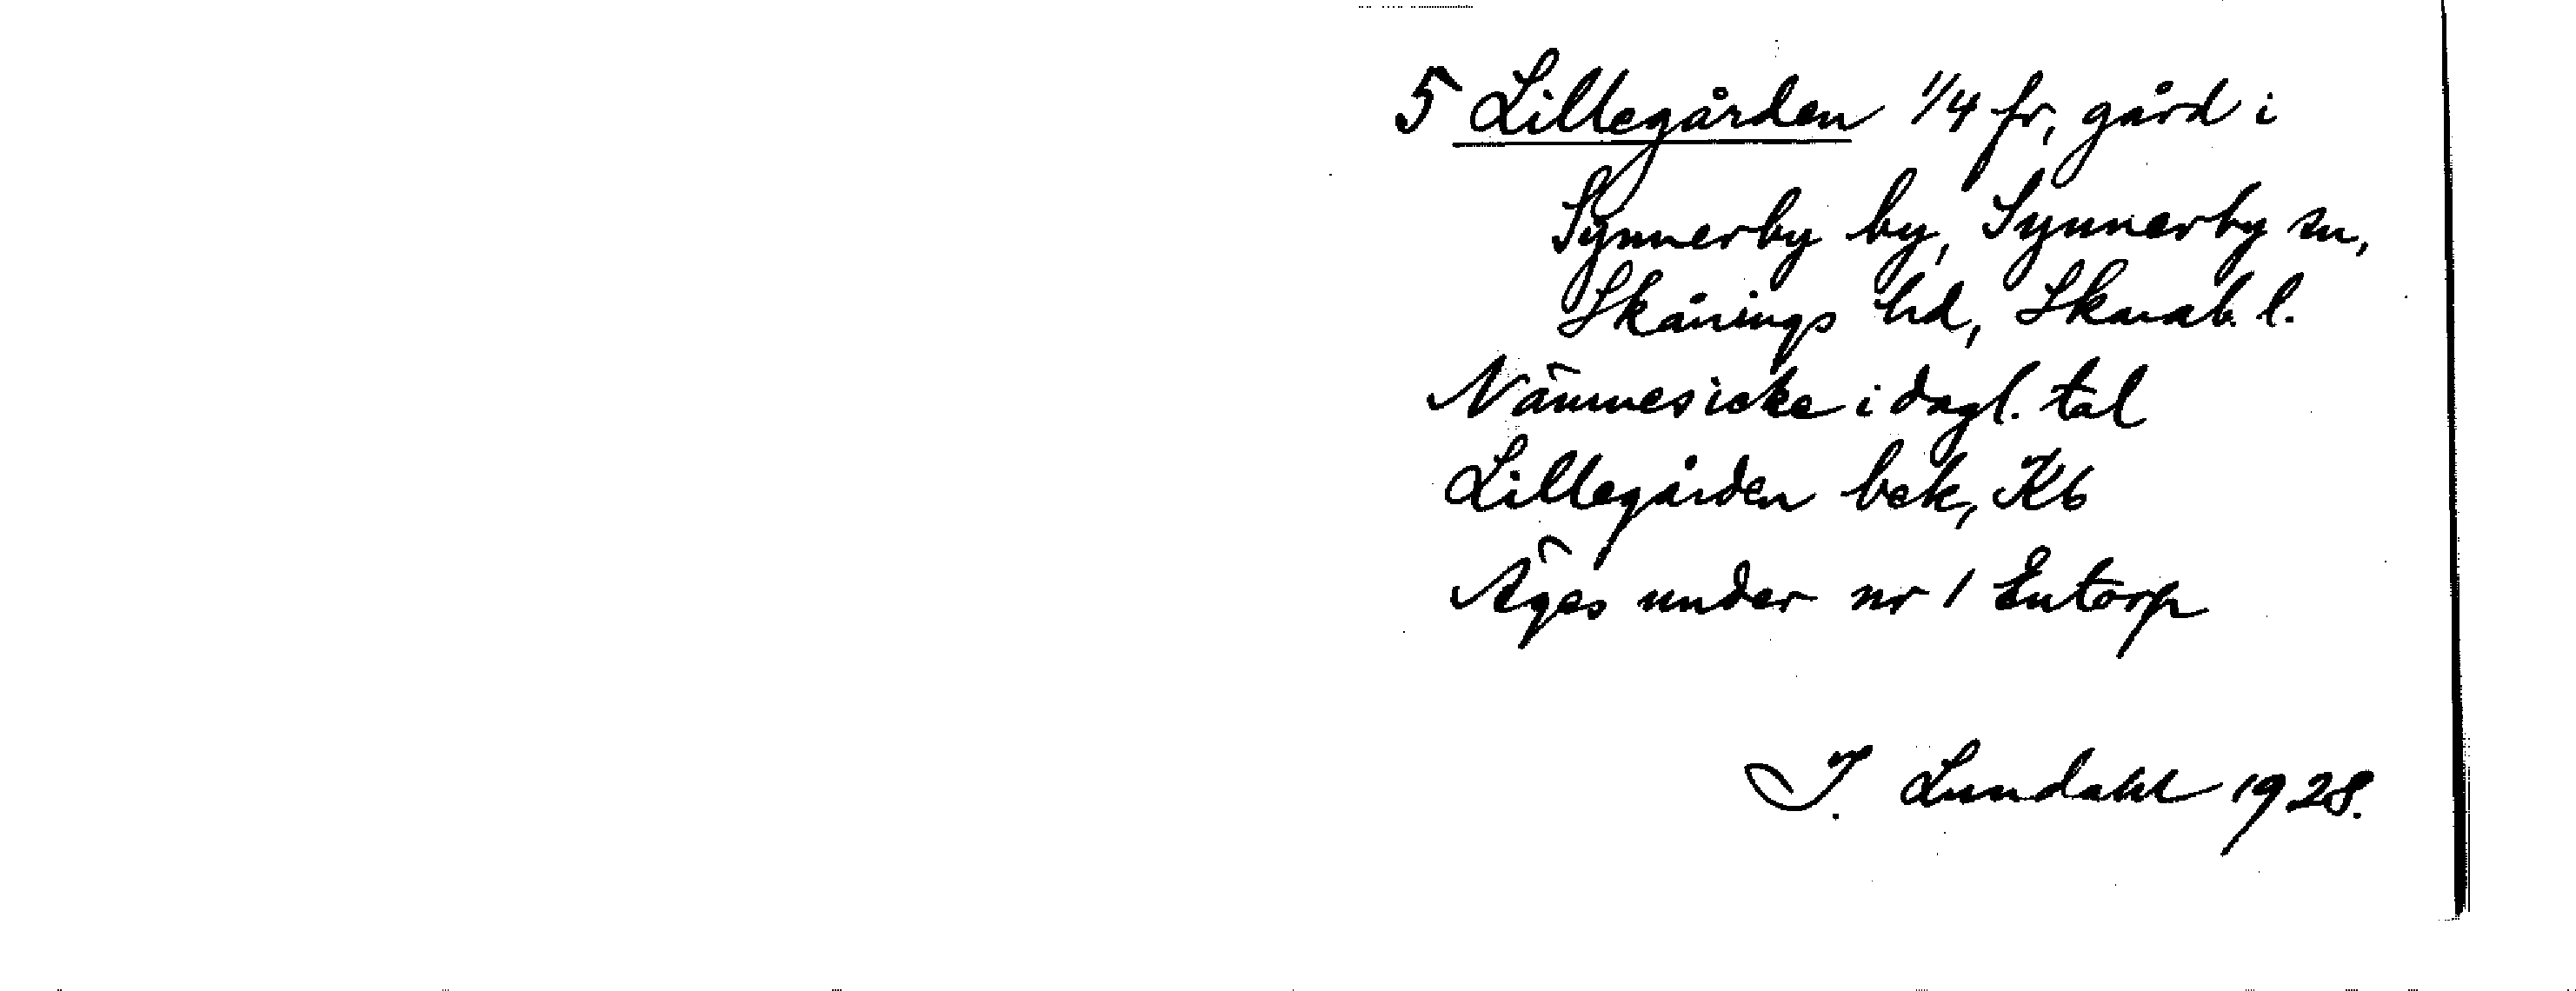 5 Lillegården 1/4 fr, gård i
Synnerby by, Synnerby sn,
Skånings hd, Skarab. l.
Nämnes icke i dagl. tal
Lillegården bek, Kb
Äges under nr 1 Entorp
I. Lundahl 1928.